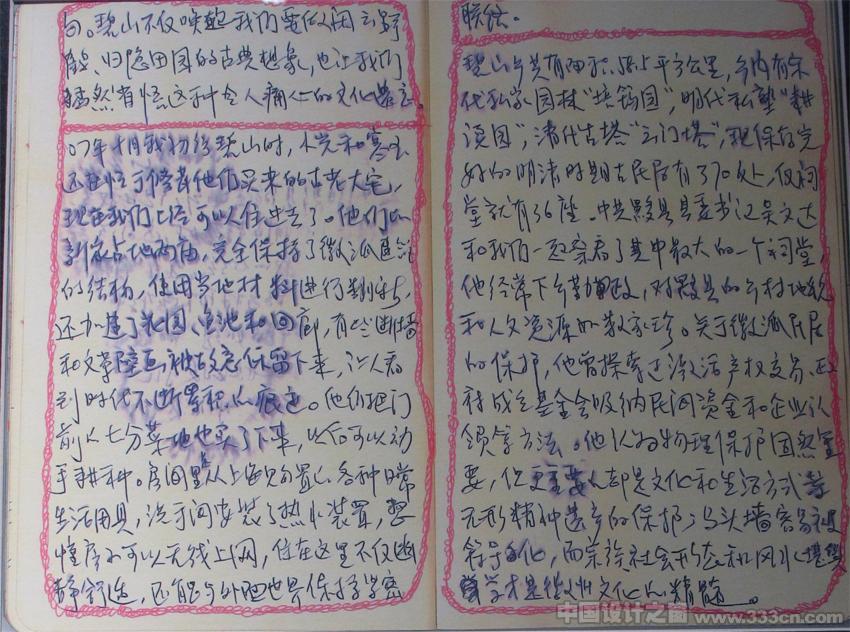 句。碧山不仅唤起我们要做闲云野
鹤、归隐田园的古典想象，也让我们
猛然省悟这种令人痛心的文化遗忘。
07年十月我初给碧山时，小光和寒玉
还在忙于修葺他们买来的古老大宅，
现在我们上路可以住进去了。他们的
新家占地两亩，完全保持了徽派建筑
的结构，使用当地材料进行翻新，
还加建了花园、鱼池和回廊，有些断墙
和文革壁画被故意保留下来，让人看
到时代不断累积的痕迹。他们把门
前八七分菜地也买了下来，以后可以动
手耕种。房间里从上海购置了各种日常
生活用具，洗手间安装了热水装置，整
幢房子可以无线上网，住在这里不仅幽
静舒适，还能与外地世界保持紧密
联结。
碧山乡共有面积 平方公里，乡内有宋
代私家园林“培筠园”，明代私塾“耕
读园”，清代古塔“云门塔”，现保存完
好的明清时期古民居有了70处，仅祠
堂就有36座。中共黟县县委书记吴文达
和我们一起察看了其中最大的一个祠堂，
他经常下乡勤政，对黟县的乡村地貌
和人文资源如数家珍。关于徽派民居
的保护，他曾探索过激活产权交易、政
府成立基金会吸纳民间资金和企业认
领等方法。他认为物理保护固然重
要，但更重要的却是文化和生活方式等
无形精神遗产的保护，马头墙容易被
符号化，而宗族社会形态和风水堪舆
学才是徽州文化的精髓。
中国设计之窗 www.333cn.com